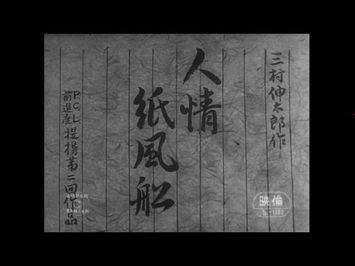 三村伸太郎作
人情
紙風船
P.C.L.提携第二回作品
前進座
映倫